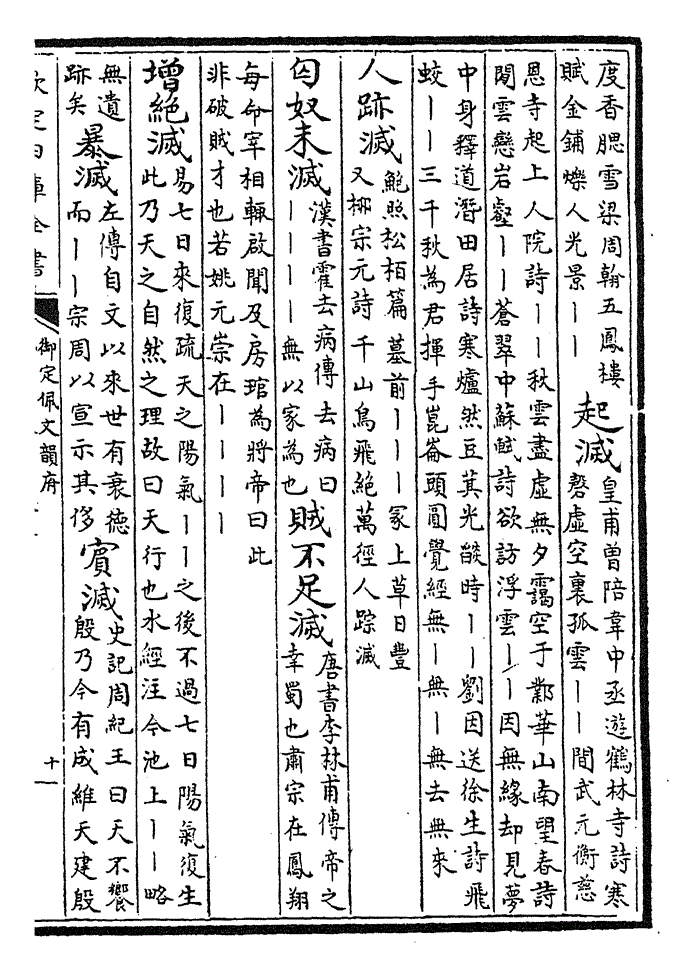 度香腮雪梁周翰五鳳樓
賦金鋪爍人光景丨丨
起滅
皇甫曽陪韋中丞遊鶴林寺詩寒
磬虚空裏孤雲丨丨間武元衡慈
恩寺起上人院詩丨丨秋雲盡虚無夕靄空于鄴華山南望春詩
閲雲戀岩壑丨丨蒼翠中蘇軾詩欲訪浮雲丨丨因無緣却見夢
中身釋道潛田居詩寒爐然豆萁光燄時丨丨劉因送徐生詩飛
蛟丨丨三千秋為君揮手崑崙頭圓覺經無丨無丨無去無来
人跡滅
鮑照松栢篇墓前丨丨丨冡上草日豐
又柳宗元詩千山鳥飛絕萬徑人踪滅
匈奴未滅
漢書霍去病傳去病曰
丨丨丨丨無以家為也
賊不足滅
唐書李林甫傳帝之
幸蜀也肅宗在鳳翔
每命宰相輙啟聞及房琯為將帝曰此
非破賊才也若姚元崇在丨丨丨丨
增絕滅
易七日來復疏天之陽氣丨丨之後不過七日陽氣復生
此乃天之自然之理故曰天行也水經注今池上丨丨略
無遺
跡矣
暴滅
左傳自文以來世有衰德
而丨丨宗周以宣示其侈
賓滅
史記周紀王曰天不饗
殷乃今有成維天建殷
欽定四庫全書
御定佩文韻府
十一